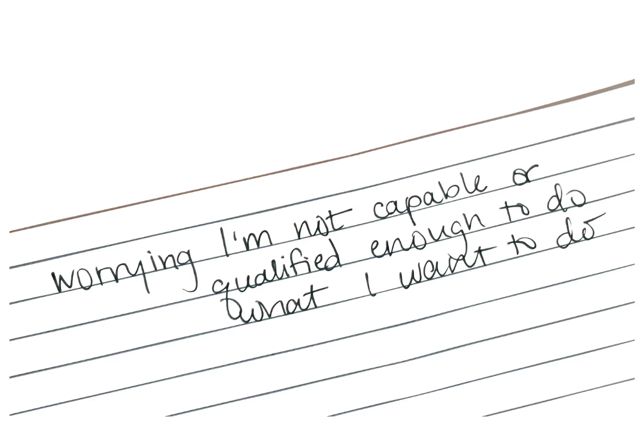 worrying I'm not capable or
qualified enough to do
what I want to do